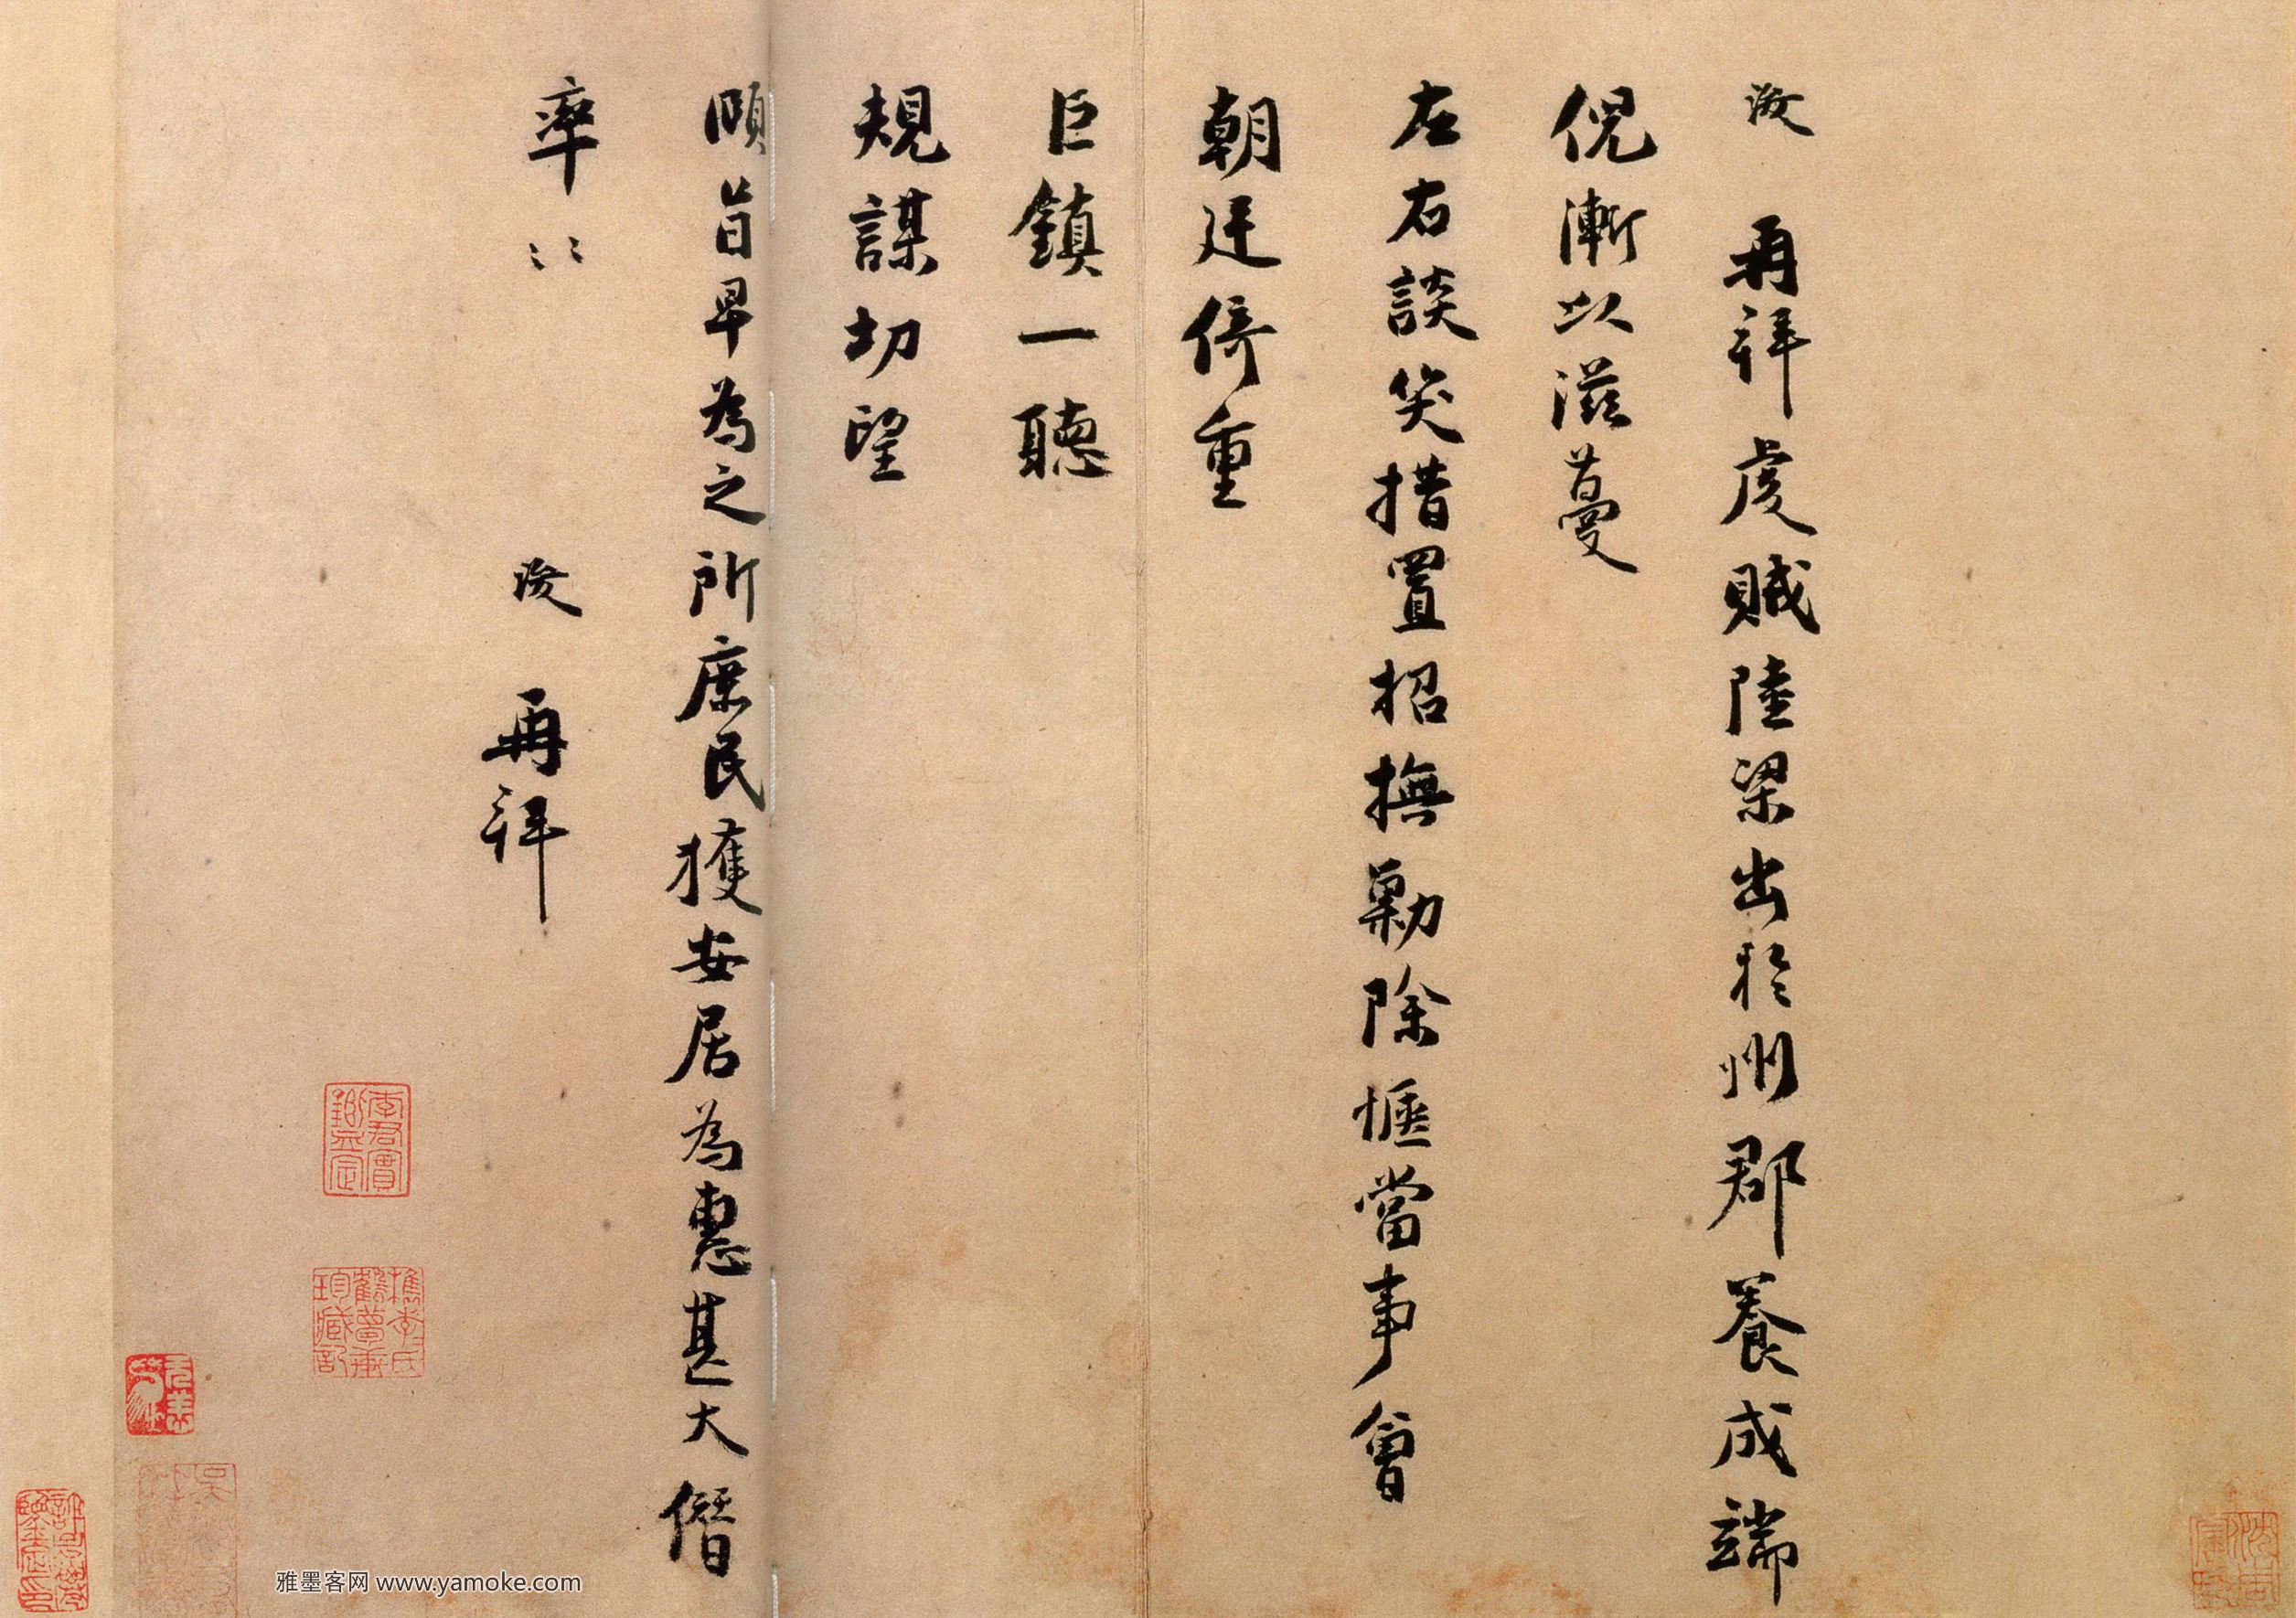 浚再拜虔賊陸梁出於州郡養成端
倪漸以滋蔓
左右談笑措置招撫勦除愜當事會
朝廷倚重
巨鎮一聽
規謀切望
頤旨早為之所庶民獲安居為惠甚大僭
率〻〻　浚再拜
李君實鑒定
檇李李氏鶴夢軒珍藏記
雅墨客网 www.yamoke.com